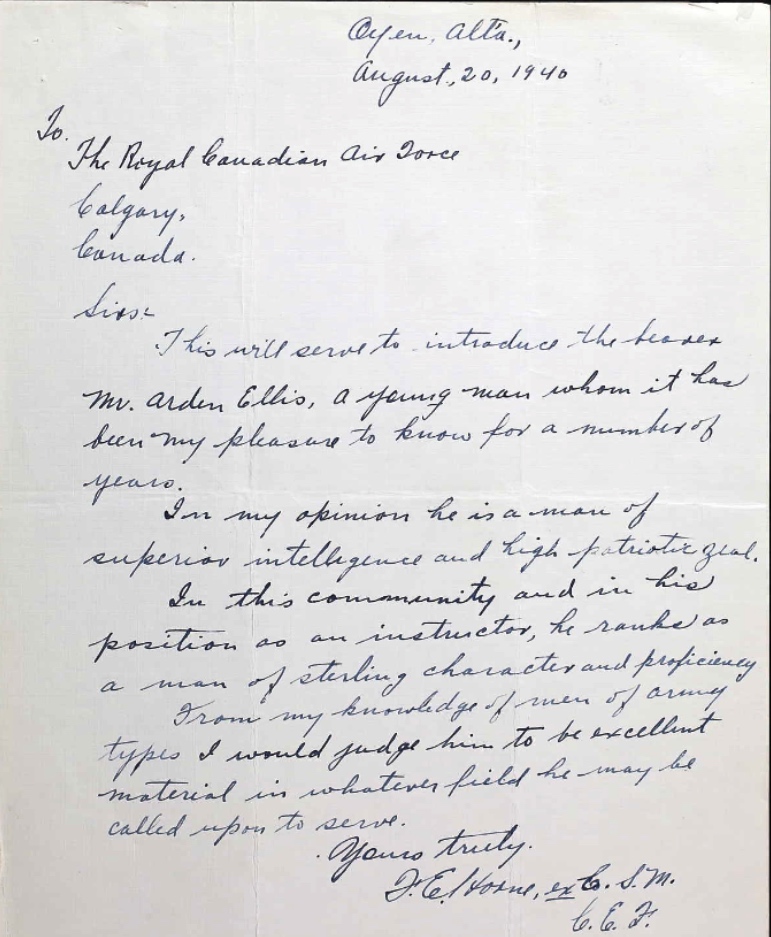 Oyen, Alta.,
August, 20, 1940
To.
The Royal Canadian Air Force
Calgary,
Canada.
Sirs:-
This will serve to introduce the bearer
Mr. Arden Ellis, a young man whom it has
been my pleasure to know for a number of
years.
In my opinion he is a man of
superior intellegence and high patriotic zeal.
In this community and in his
position as an instructor, he ranks as
a man of sterling character and proficiency
From my knowledge of men of army
types I would judge him to be excellent
material in whatever field he may be
called upon to serve.
Yours truly.
F. E. Horne, ex C. S. M.
C. E. F.